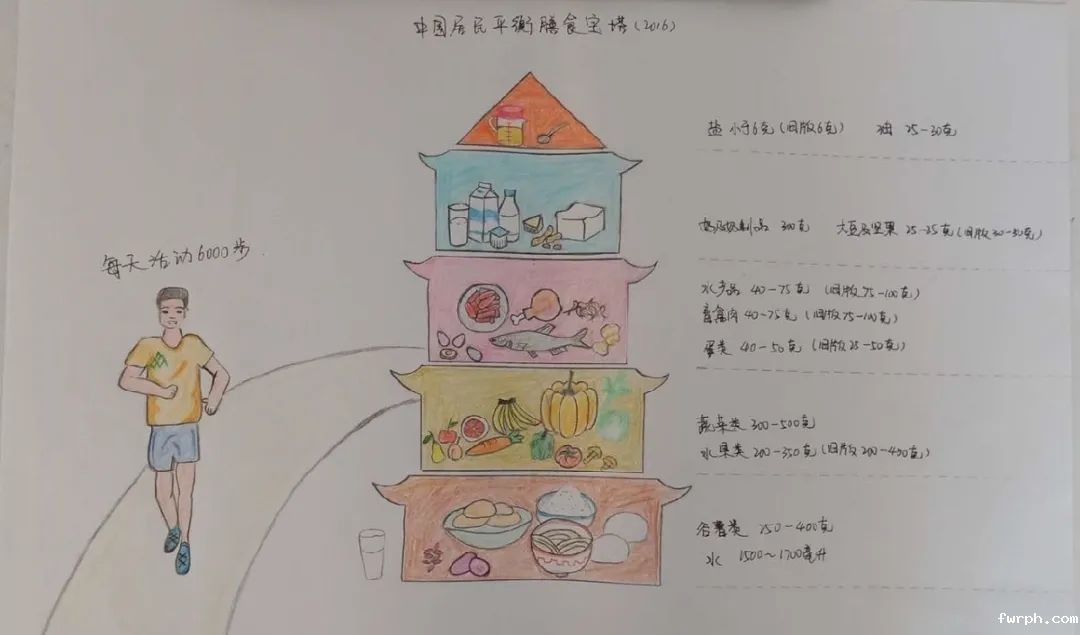 中国居民平衡膳食宝塔(2016)
盐 小于6克(旧版6克) 油 25-30克
奶及奶制品 300克 大豆及坚果 25-35克(旧版30-50克)
每天活动6000步
水产品 40-75克 (旧版75-100克)
畜禽肉 40-75克 (旧版75-100克)
蛋类 40-50克 (旧版25-50克)
蔬菜类 300-500克
水果类 200-350克(旧版200-400克)
谷薯类 250-400克
水 1500~1700毫升
fwrph.com